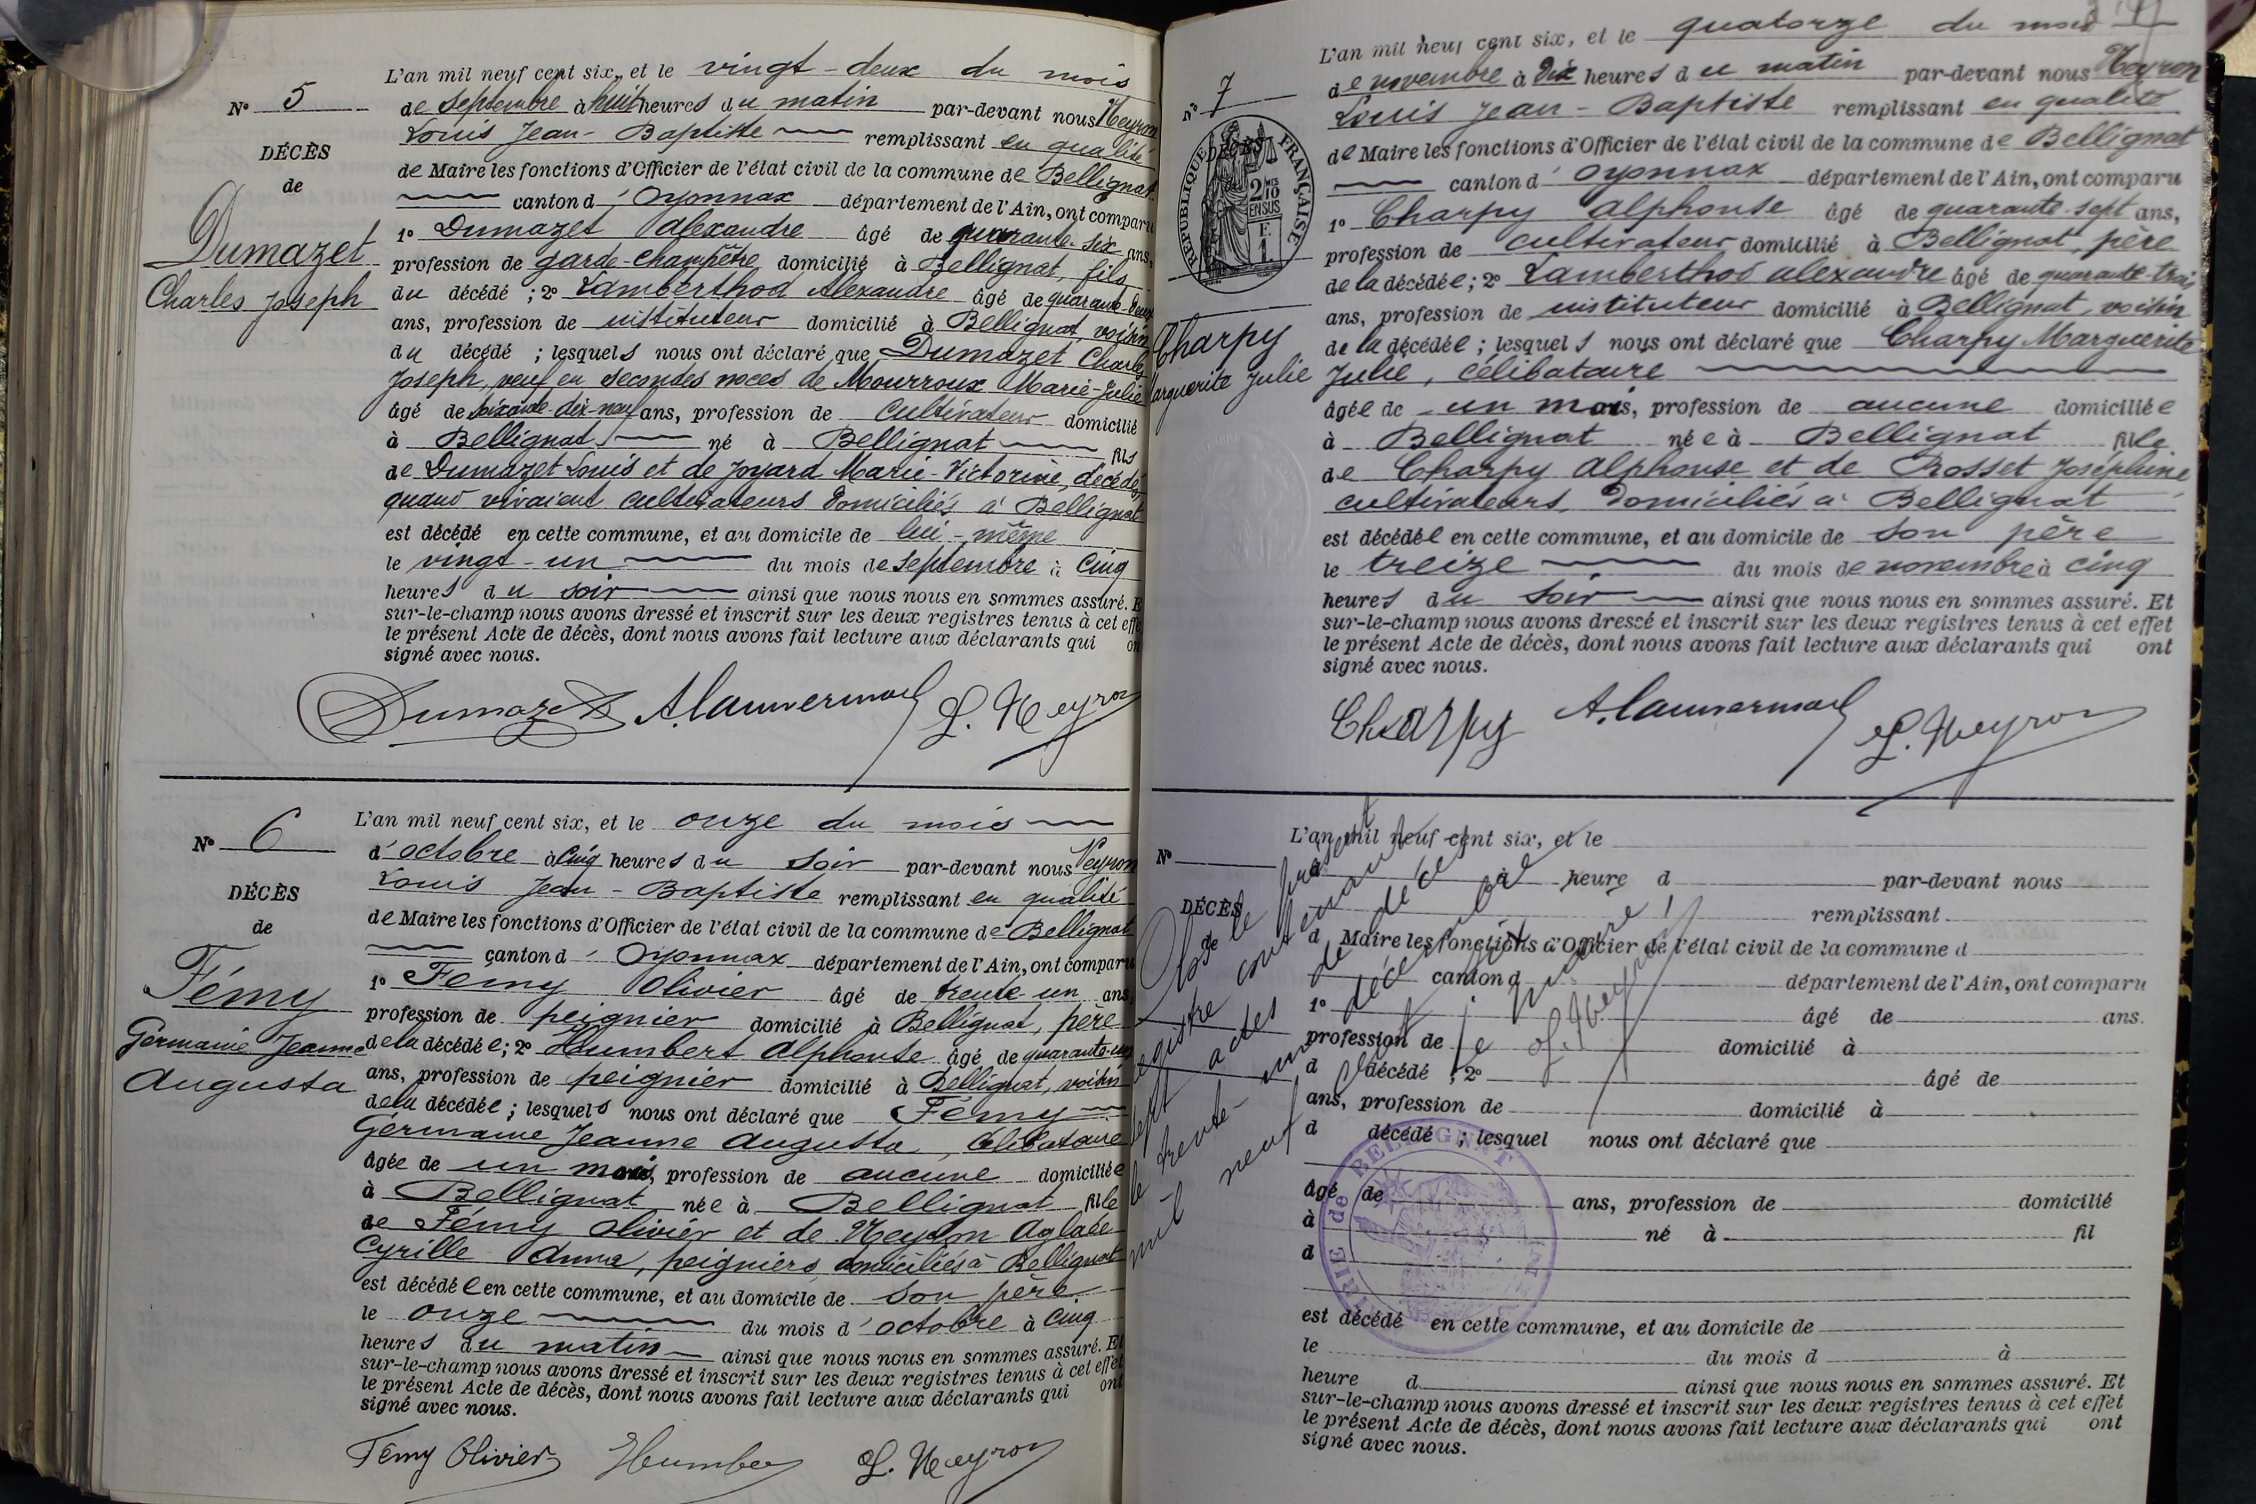 N° 5
DÉCÈS
de
Dumazet
Charles Joseph
L'an mil neuf cent six, et le vingt-deux du mois
de septembre à huit heures du matin par-devant nous Neyron
Louis Jean-Baptiste remplissant en qualité
de Maire les fonctions d'Officier de l'état civil de la commune de Bellignat
canton d'Oyonnax département de l'Ain, ont comparu
1° Dumazet Alexandre âgé de quarante-six ans,
profession de garde-champêtre domicilié à Bellignat, fils
du décédé ; 2° Lamberthod Alexandre âgé de quarante-deux
ans, profession de instituteur domicilié à Bellignat, voisin
du décédé ; lesquels nous ont déclaré que Dumazet Charles
Joseph, veuf en secondes noces de Mourroux Marie-Julie
âgé de soixante-dix-neuf ans, profession de cultivateur domicilié
à Bellignat né à Bellignat fils
de Dumazet Louis et de Joyard Marie-Victorine, décédés,
quand vivaient cultivateurs domiciliés à Bellignat
est décédé en cette commune, et au domicile de lui-même
le vingt-un du mois de septembre à cinq
heures du soir ainsi que nous nous en sommes assuré. E
sur-le-champ nous avons dressé et inscrit sur les deux registres tenus à cet effe
le présent Acte de décès, dont nous avons fait lecture aux déclarants qui on
signé avec nous.
Dumazet L. Neyron
N° 6
DÉCÈS
de
Fémy
Germaine Jeanne
Augusta
L'an mil neuf cent six, et le onze du mois
d'octobre à cinq heures du soir par-devant nous Neyron
Louis Jean-Baptiste remplissant en qualité
de Maire les fonctions d'Officier de l'état civil de la commune de Bellignat
canton d'Oyonnax département de l'Ain, ont comparu
1° Fémy Olivier âgé de trente-un ans,
profession de peignier domicilié à Bellignat, père
de la décédée ; 2° Humbert Alphonse âgé de quarante-un
ans, profession de peignier domicilié à Bellignat, voisin
de la décédée ; lesquels nous ont déclaré que Fémy
Germaine Jeanne Augusta, célibataire
âgée de un mois, profession de aucune domiciliée
à Bellignat née à Bellignat fille
de Fémy Olivier et de Neyron Aglaée
Cyrille Anna, peigniers domiciliés à Bellignat
est décédée en cette commune, et au domicile de son père
le onze du mois d'octobre à cinq
heures du matin ainsi que nous nous en sommes assuré. Et
sur-le-champ nous avons dressé et inscrit sur les deux registres tenus à cet effet
le présent Acte de décès, dont nous avons fait lecture aux déclarants qui ont
signé avec nous.
Fémy Olivier Humbert L. Neyron
N° 7
DÉCÈS
RÉPUBLIQUE FRANÇAISE
2 10MES
EN SUS
F.
1
Charpy
Marguerite Julie
L'an mil neuf cent six, et le quatorze du mois
de novembre à dix heures du matin par-devant nous Neyron
Louis Jean-Baptiste remplissant en qualité
de Maire les fonctions d'Officier de l'état civil de la commune de Bellignat
canton d'Oyonnax département de l'Ain, ont comparu
1° Charpy Alphonse âgé de quarante-sept ans,
profession de cultivateur domicilié à Bellignat, père
de la décédée ; 2° Lamberthod Alexandre âgé de quarante-trois
ans, profession de instituteur domicilié à Bellignat, voisin
de la décédée ; lesquels nous ont déclaré que Charpy Marguerite
Julie, célibataire
âgée de un mois, profession de aucune domiciliée
à Bellignat née à Bellignat fille
de Charpy Alphonse et de Prosset Joséphine
cultivateurs, domiciliés à Bellignat
est décédée en cette commune, et au domicile de son père
le treize du mois de novembre à cinq
heures du soir ainsi que nous nous en sommes assuré. Et
sur-le-champ nous avons dressé et inscrit sur les deux registres tenus à cet effet
le présent Acte de décès, dont nous avons fait lecture aux déclarants qui ont
signé avec nous.
Charpy L. Neyron
N°
DÉCÈS
de
L'an mil neuf cent six, et le
à heure d par-devant nous
remplissant
d Maire les fonctions d'Officier de l'état civil de la commune d
canton d département de l'Ain, ont comparu
1° âgé de ans.
profession de domicilié à
d décédé ; 2° âgé de
ans, profession de domicilié à
d décédé ; lesquel nous ont déclaré que
âgé de ans, profession de domicilié
à né à fil
d
est décédé en cette commune, et au domicile de
le du mois d à
heure d ainsi que nous nous en sommes assuré. Et
sur-le-champ nous avons dressé et inscrit sur les deux registres tenus à cet effet
le présent Acte de décès, dont nous avons fait lecture aux déclarants qui ont
signé avec nous.
Clos le présent
registre contenant
sept actes de décès
le trente-un décembre
mil neuf cent six
le maire,
L. Neyron
MAIRIE de BELLIGNAT